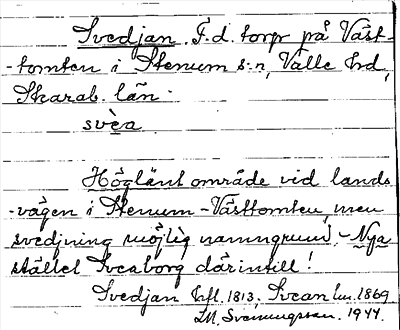 Svedjan. F. d. torp på Väst-
-tomten i Stenum s:n, Valle hrd,
Skarab. län.
svèa
Höglänt område vid lands
-vägen i Stenum-Västtomten, men
svedjning möjlig namngrund. - Nya
stället Sveaborg därintill!
Svedjan hfl. 1813, Svean hu. 1869
1944.